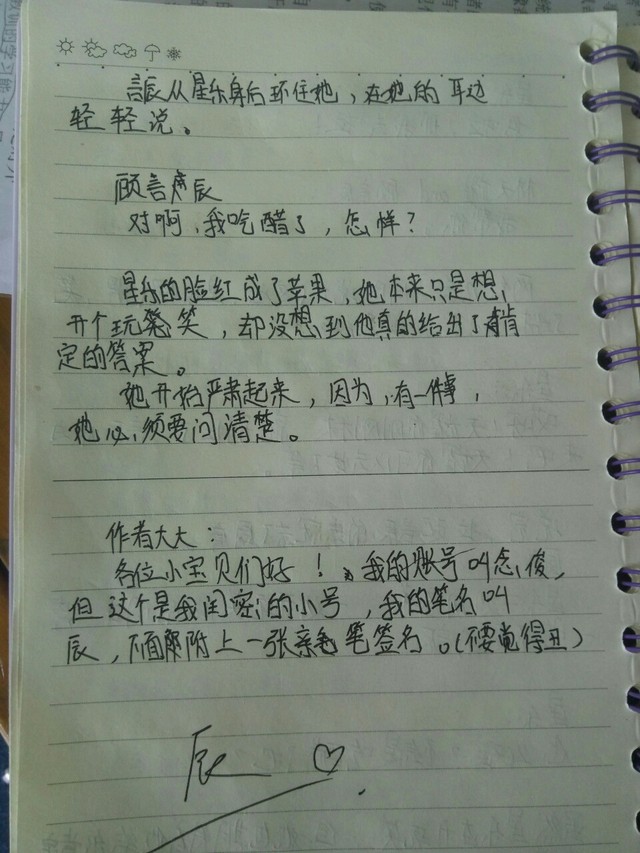 言辰从星乐身后环住她，在她的耳边
轻轻说。
顾言辰
对啊，我吃醋了，怎样？
星乐的脸红成了苹果，她本来只是想，
开个玩笑，却没想到他真的给出了肯
定的答案。
她开始严肃起来，因为，有一件事，
她必须要问清楚。
作者大大：
各位小宝贝们好！我的账号叫念俊，
但这个是我闺密的小号，我的笔名叫
辰，下面附上一张亲笔签名。（不要觉得丑）
辰 ♡